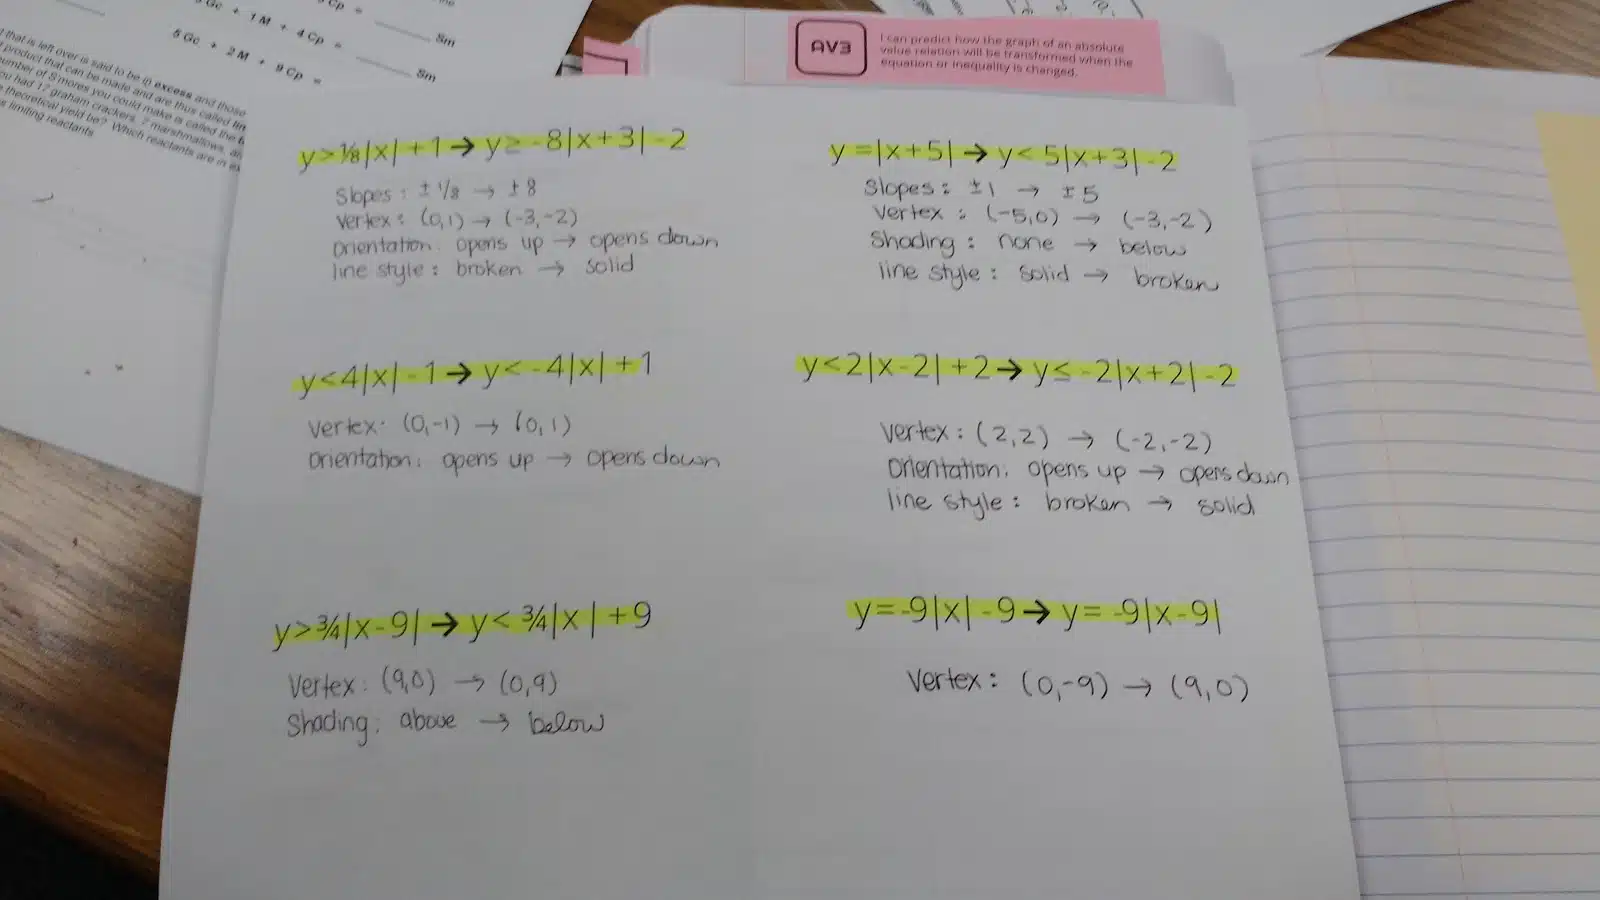 5 Gc + 1 M + 4 Cp = ____ Sm
5 Gc + 2 M + 9 Cp = ____ Sm
that is left over is said to be in excess and those
product that can be made and are thus called
number of S'mores you could make is called the
you had 17 graham crackers, 7 marshmallows,
theoretical yield be? Which reactants are in
limiting reactants
AV3
I can predict how the graph of an absolute
value relation will be transformed when the
equation or inequality is changed.
y>⅛|x|+1→y≥-8|x+3|-2
Slopes: ±1/8 → ±8
Vertex: (0,1) → (-3,-2)
Orientation: opens up → opens down
line style: broken → solid
y=|x+5|→y<5|x+3|-2
Slopes: ±1 → ±5
Vertex: (-5,0) → (-3,-2)
Shading: none → below
line style: solid → broken
y<4|x|-1→y<-4|x|+1
Vertex: (0,-1) → (0,1)
Orientation: opens up → opens down
y<2|x-2|+2→y≤-2|x+2|-2
Vertex: (2,2) → (-2,-2)
Orientation: opens up → opens down
line style: broken → solid
y>¾|x-9|→y<¾|x|+9
Vertex: (9,0) → (0,9)
Shading: above → below
y=-9|x|-9→y=-9|x-9|
Vertex: (0,-9) → (9,0)